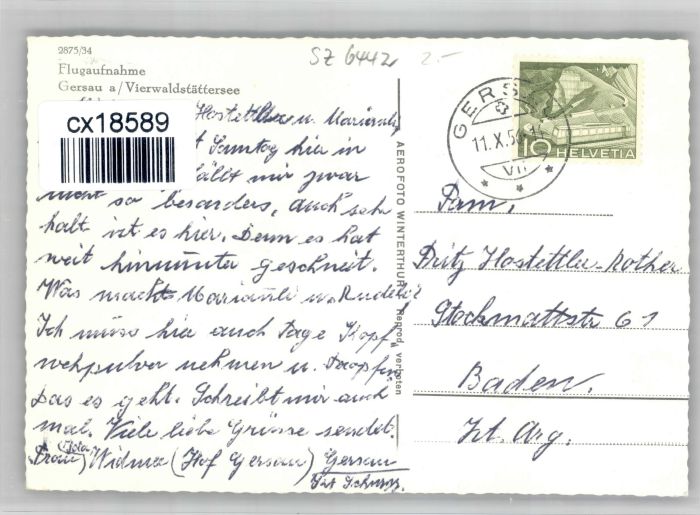 SZ 6442 2.-
2875/34
Flugaufnahme
Gersau a/Vierwaldstättersee
Hostettler u. Mariandli
cx18589
Sonntag hier in
fällt mir zwar
nicht so besonders, auch sehr
kalt ist es hier. Denn es hat
weit hinunter geschneit.
Was macht Mariandli u. Ruedeli?
Ich muss hier auch Tage Kopf
wehpulver nehmen u. Tropfen
das es geht. Schreibt mir auch
mal. Viele liebe Grüsse sendet.
Frau Widmer (Hof Gersau) Gersau
Kt. Schwyz.
AEROFOTO WINTERTHUR Reprod. verboten
GERSAU
11.X.5
VII
10 HELVETIA
Fam.
Fritz Hostettler-Rother
Stockmattstr 61
Baden.
Kt. Arg.